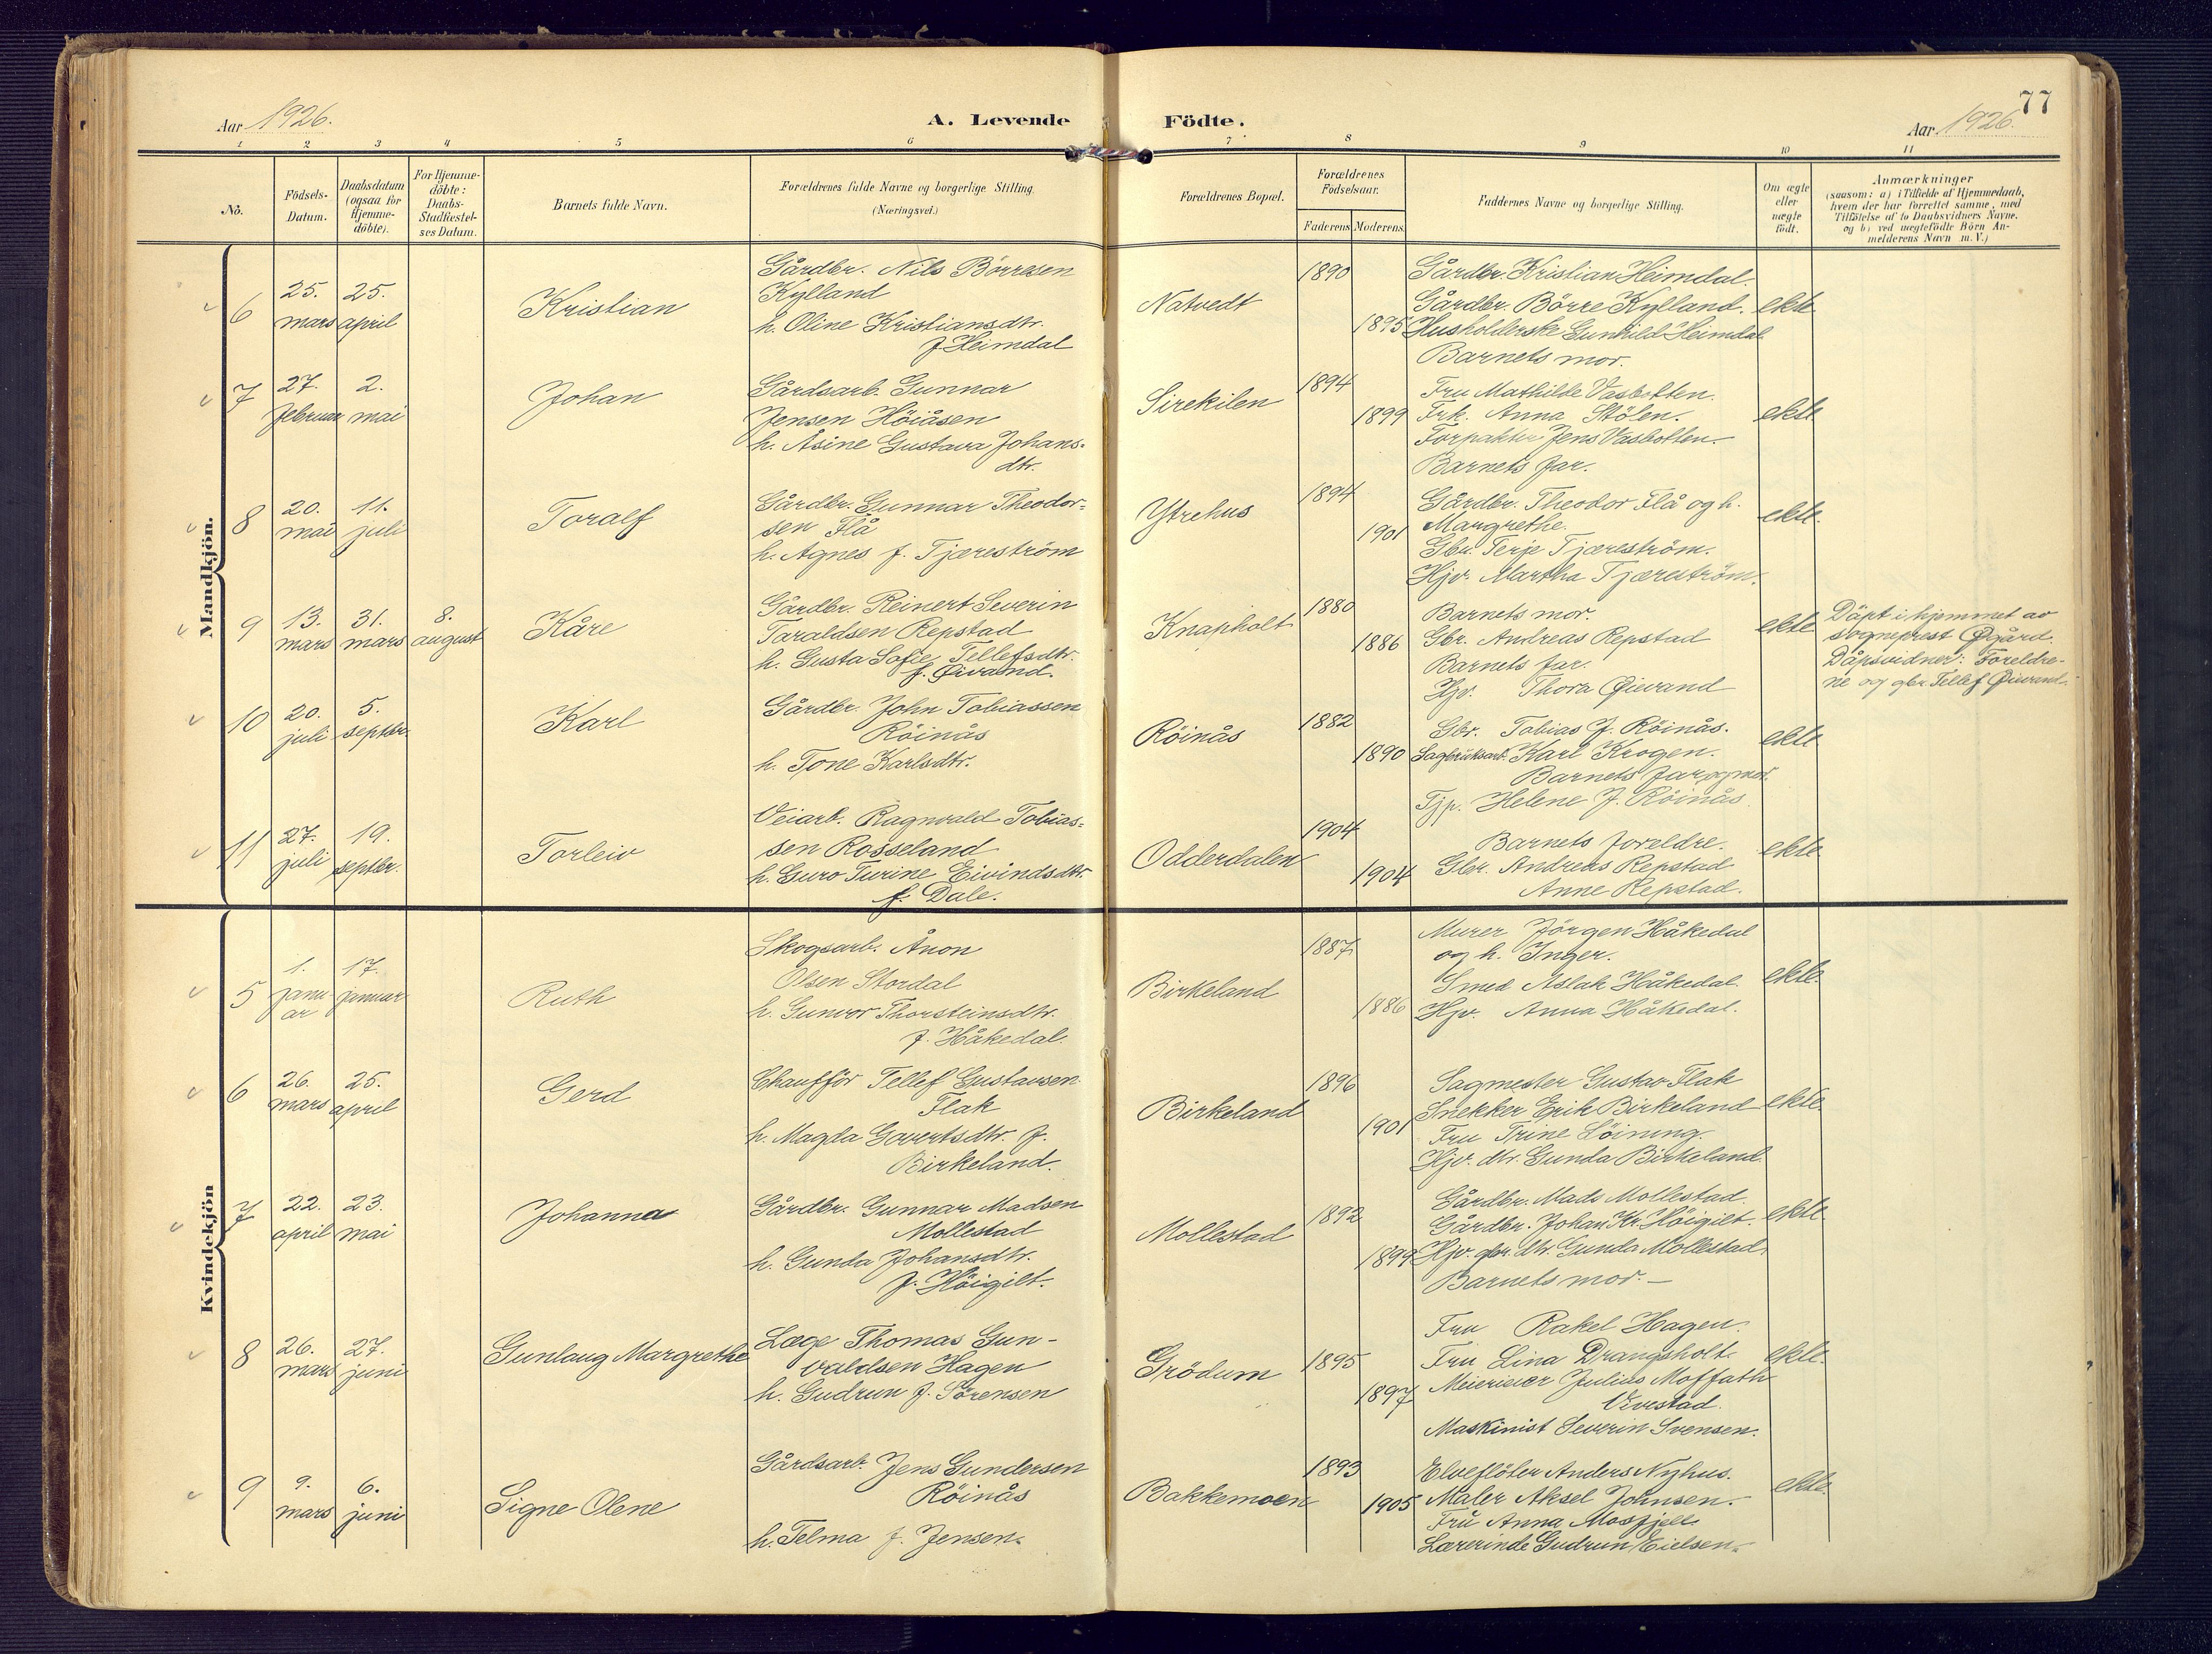 77
Aar 1926.
A. Levende Födte.
Aar. 1926.
1 2 3 4 5 6 7 8 9 10 11
No.
Födsels-
Datum.
Daabsdatum
(ogsaa for
Hjemme-
döbte).
For Hjemme-
döbte:
Daabs-
Stadfæstel-
ses Datum.
Barnets fulde Navn.
Forældrenes fulde Navne og borgerlige Stilling.
(Næringsvei.)
Forældrenes Bopæl.
Forældrenes
Födselsaar.
Faderens Moderens
Faddernes Navne og borgerlige Stilling.
Om ægte
eller
uægte
födt.
Anmærkninger
(saasom: a) i Tilfælde af Hjemmedaab,
hvem der har forrettet samme, med
Tilföielse af to Daabsvidners Navne.
og b) ved uægtefödte Börn An-
melderens Navn m. V.)
Mandkjön.
6
25.
mars
25.
april
Kristian
Gårdbr. Nils Börresen
Kylland
h. Oline Kristiansdtr.
f Heimdal
Natvedt
1890
1895
Gårdbr. Kristian Heimdal.
Gårdbr. Börre Kylland.
Husholderske Gunhild Heimdal
Barnets mor.
ekte
7
27.
februar
2.
mai
Johan
Gårdsarb. Gunnar
Jensen Höiåsen
h. Åsine Gustava Johans-
dtr.
Sirekilen
1894
1899
Fru Mathilde Vasbotten.
Frk. Anna Stölen.
Forpakter Jens Vasbotten.
Barnets far.
ekte
8
20.
mai
11.
juli
Toralf
Gårdbr. Gunnar Theodor-
sen Flå
h. Agnes f. Tjæreström
Ytrehus
1894
1901
Gårdbr. Theodor Flå og h.
Margrethe.
Gbr. Terje Tjæreström.
Hjv. Martha Tjæreström.
ekte.
9
13.
mars
31.
mars
8.
august
Kåre
Gårdbr. Reinert Severin
Taraldsen Repstad
h. Gusta Sofie Tellefsdtr.
f. Øivand.
Knapholt
1880
1886
Barnets mor.
Gbr. Andreas Repstad
Barnets far.
Hjv. Thora Øivand
ekte
Döpt i hjemmet av
sogneprest Øgård.
Dåpsvidner: Foreldre-
ne og gbr. Tellef Øivand.
10
20.
juli
5.
septbr.
Karl
Gårdbr. John Tobiassen
Röinås
h. Tone Karlsdtr.
Röinås
1882
1890
Gbr. Tobias J. Röinås.
Sagbruksarb. Karl Krogen.
Barnets far og mor.
Tjp. Helene J. Röinås
ekte
11
27.
juli
19.
septbr.
Torleiv
Veiarb. Ragnvald Tobias-
sen Rosseland
h. Guro Turine Eivindsdtr.
f. Dale.
Odderdalen
1904
1904
Barnets foreldre.
Gbr. Andreas Repstad
Anne Repstad.
ekte.
Kvindekjön
5
1.
janu
ar
17.
januar
Ruth
Skogsarb. Ånon
Olsen Stordal
h. Gunvor Thorsteinsdtr.
f. Håkedal.
Birkeland
1887
1886
Murer Jörgen Håkedal
og h. Inger.
Smed Aslak Håkedal.
Hjv. Anna Håkedal.
ekte.
6
26.
mars
25.
april
Gerd
Chaufför Tellef Gustavsen
Flak
h. Magda Govertsdtr. f.
Birkeland.
Birkeland
1896
1901
Sagmester Gustav Flak
Snekker Erik Birkeland
Fru Trine Löining.
Hjv. dtr. Gunda Birkeland
ekte.
7
22.
april
23.
mai
Johanna
Gårdbr. Gunnar Madsen
Mollestad
h. Gunda Johansdtr.
f. Höigilt.
Mollestad
1892
1899
Gårdbr. Mads Mollestad
Gårdbr. Johan Kr. Höigilt.
Hjv. gbr. dtr. Gunda Mollestad
Barnets mor. —
ekte.
8
26.
mars
27.
juni
Gunlaug Margrethe
Læge Thomas Gun-
valdsen Hagen
h. Gudrun f. Sörensen
Grödum
1895
1897
Fru Rakel Hagen.
Fru Lina Drangsholt.
Meierieier Julius Moffath
Vevestad.
Maskinist Severin Svensen.
ekte.
9
9.
mars
6.
juni
Signe Olene
Gårdsarb. Jens Gundersen
Röinås
h. Telma f. Jensen.
Bakkemoen
1893
1905
Elveflöter Anders Nyhus.
Maler Aksel Johnsen.
Fru Anna Mosfjell
Lærerinde Gudrun Eielsen.
ekte.